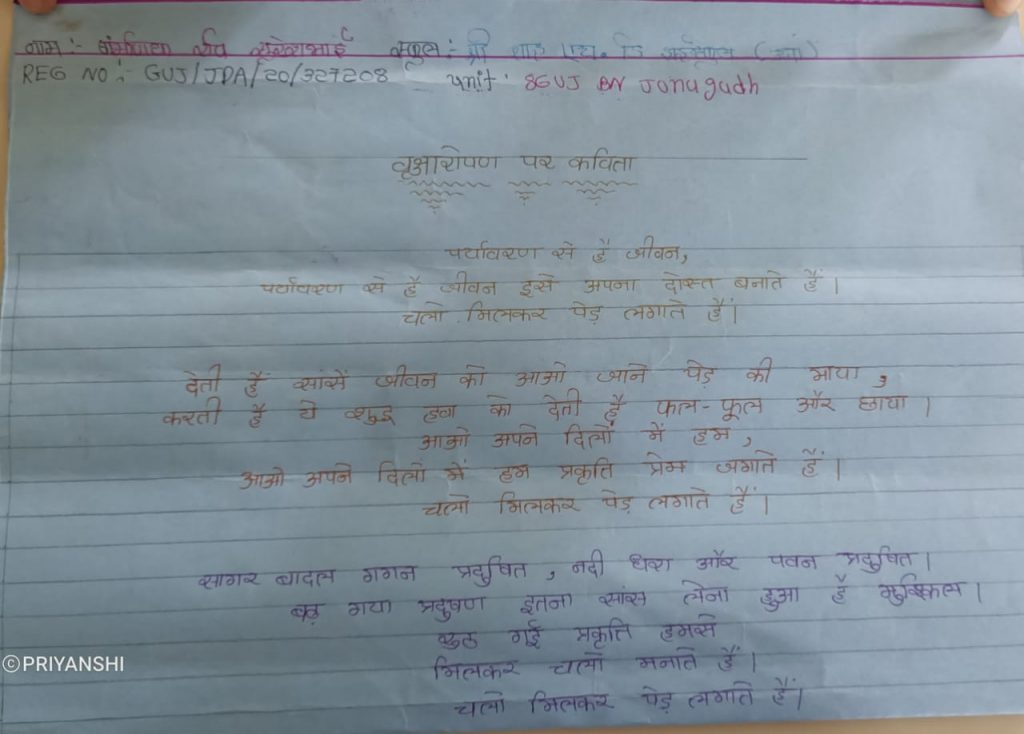 नाम :- स्कूल :- श्री
REG NO :- GUJ/JDA/20/327208 unit : 8GUJ BN Junagadh
वृक्षारोपण पर कविता
पर्यावरण से है जीवन,
पर्यावरण से है जीवन इसे अपना दोस्त बनाते हैं।
चलो मिलकर पेड़ लगाते हैं।
देती हैं सांसें जीवन को आओ जाने पेड़ की माया,
करती है ये शुद्ध हवा को देती है फल-फूल और छाया।
आओ अपने दिलों में हम,
आओ अपने दिलों में हम प्रकृति प्रेम जगाते हैं।
चलो मिलकर पेड़ लगाते हैं।
सागर बादल गगन प्रदुषित, नदी धरा और पवन प्रदुषित।
बढ़ गया प्रदुषण इतना सांस लेना हुआ है मुश्किल।
रूठ गई प्रकृति हमसे
मिलकर चलो मनाते हैं।
चलो मिलकर पेड़ लगाते हैं।
©PRIYANSHI